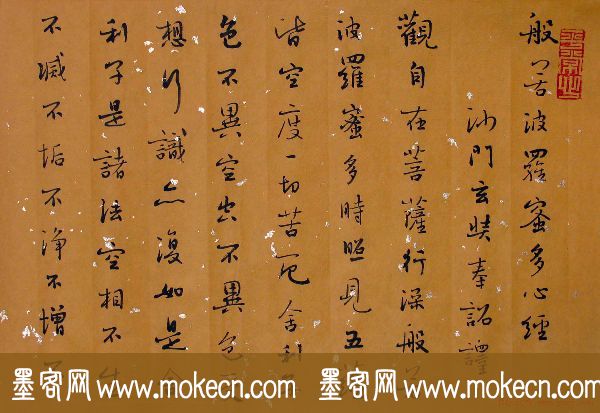 般若波羅蜜多心經
沙門玄奘奉詔譯
觀自在菩薩行深般
波羅蜜多時照見五
皆空度一切苦厄舍利
色不異空空不異色
想行識亦復如是
利子是諸法空相不生
不滅不垢不淨不增
墨客网 www.mokecn.com 墨客网 www.mokecn.com